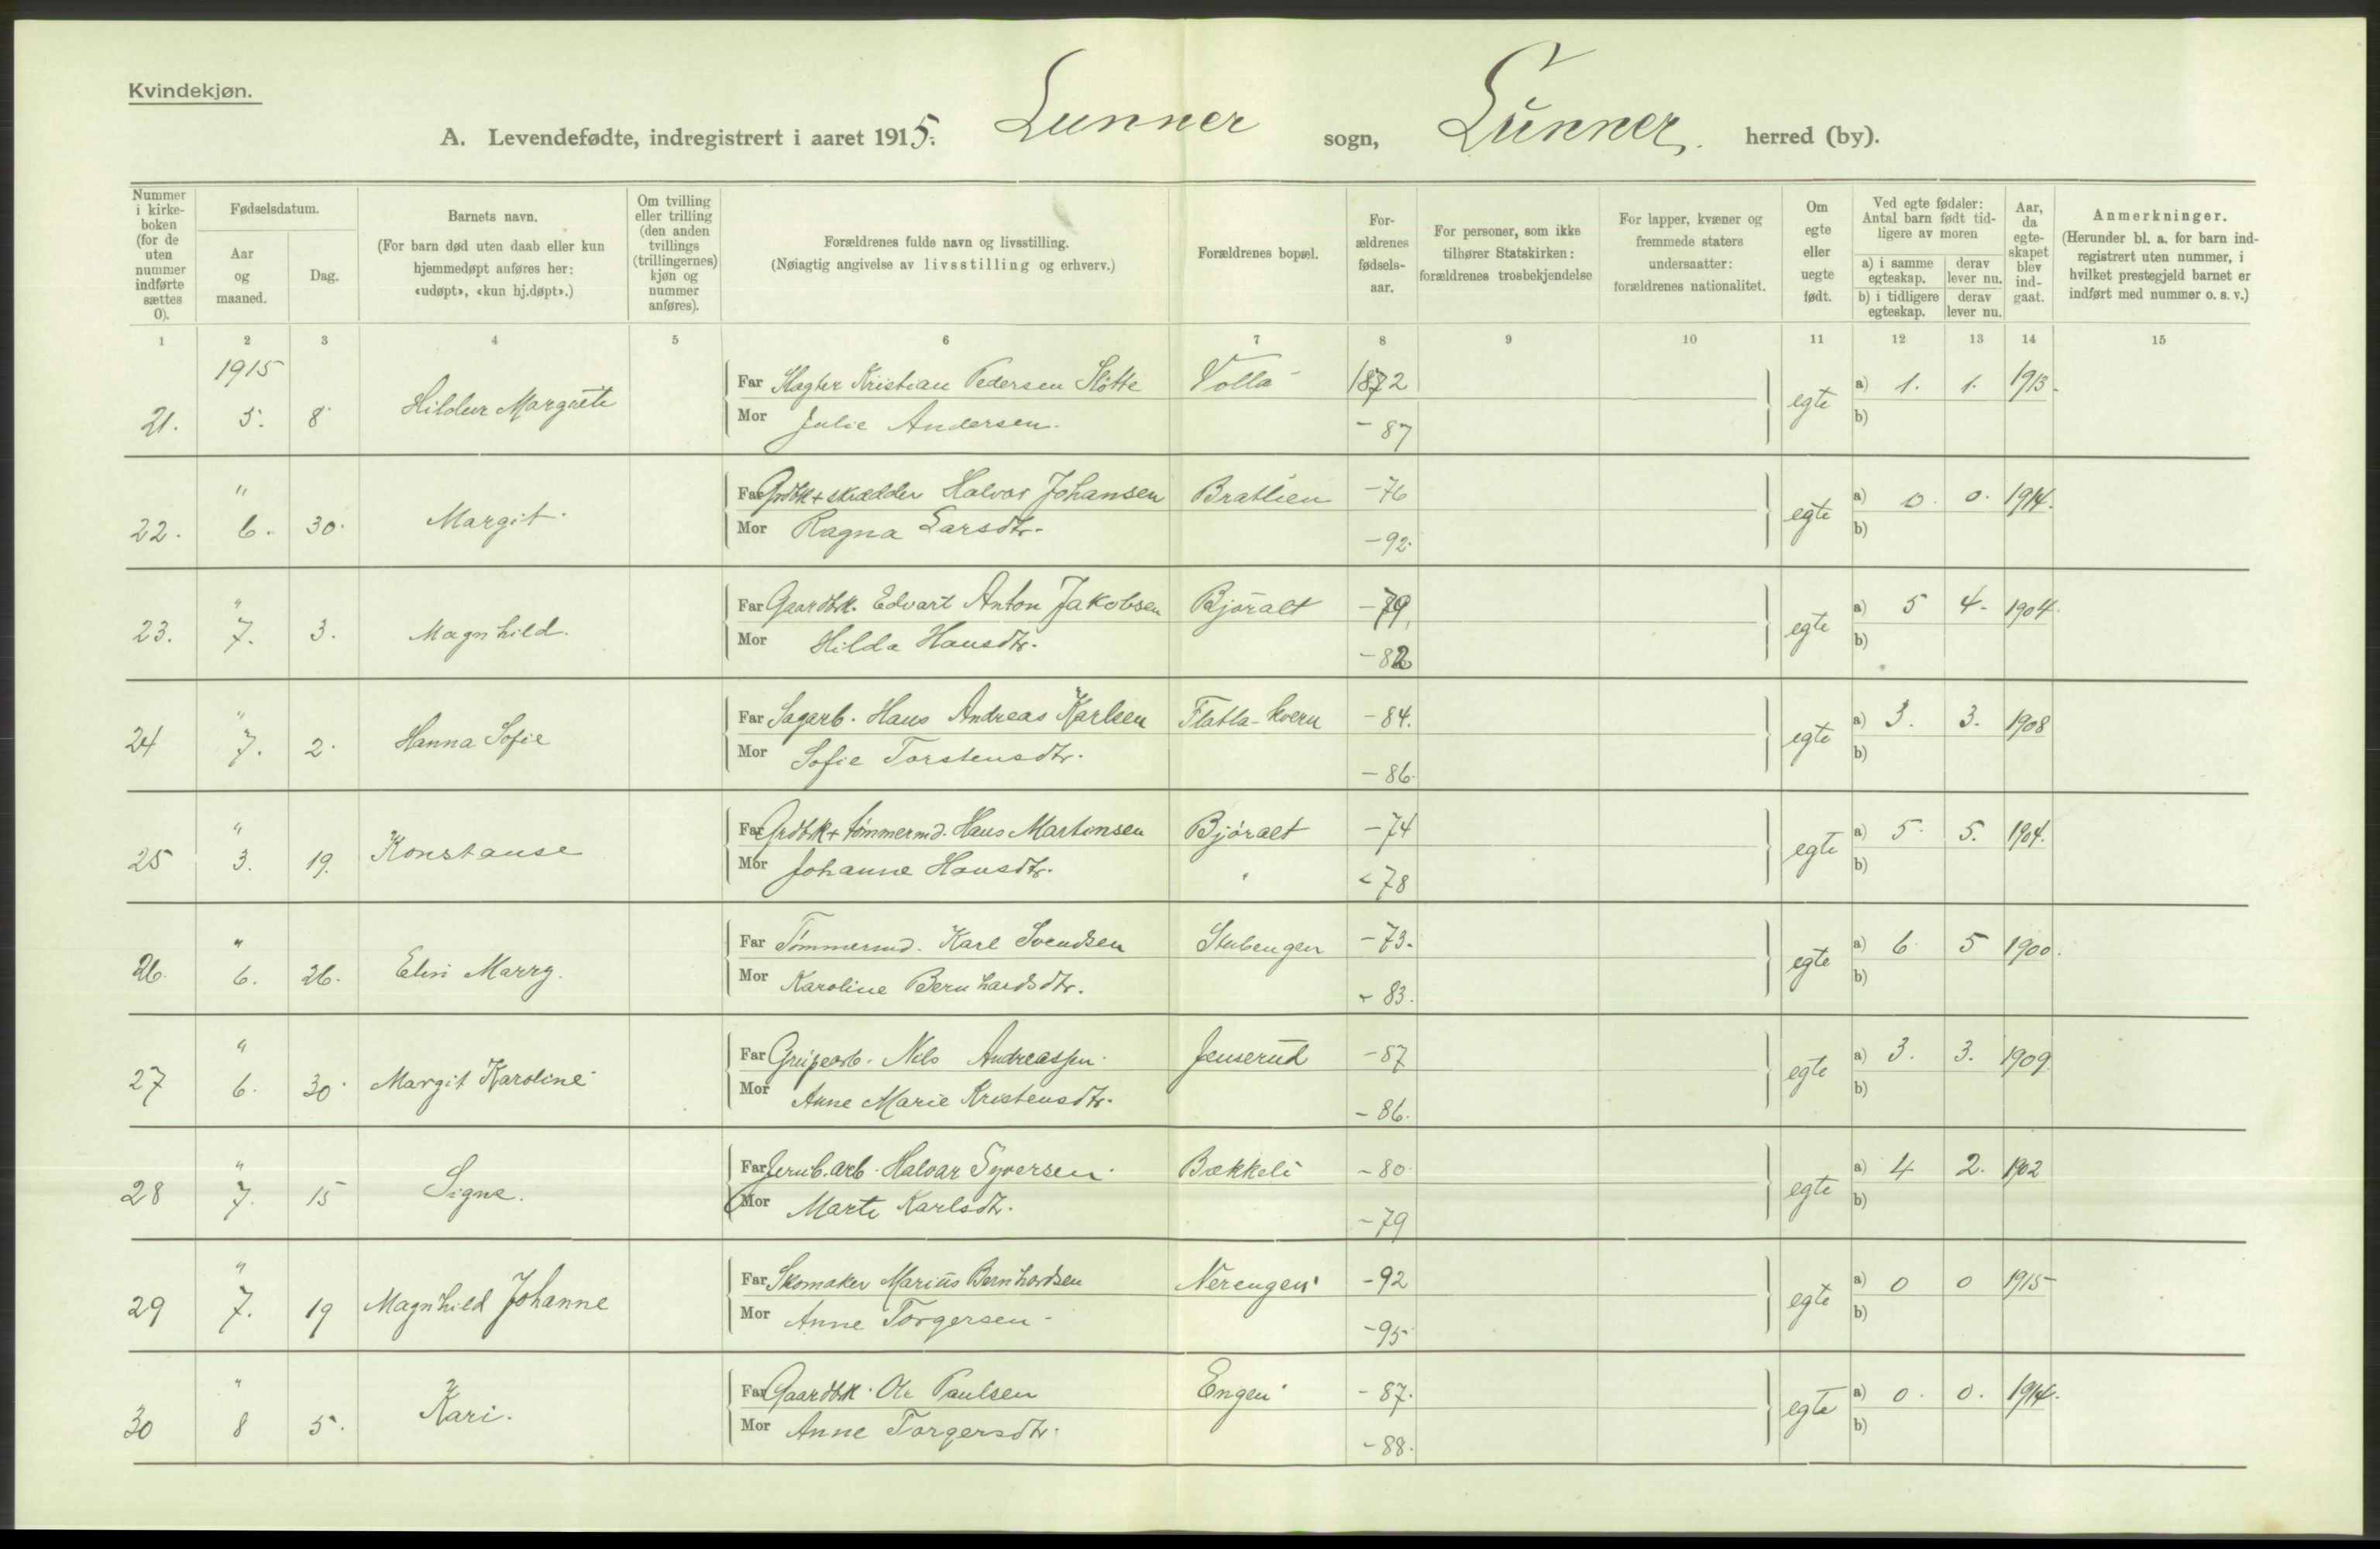 Kvindekjøn.
A. Levendefødte, indregistrert i aaret 1915. Lunner sogn, Lunner. herred (by).
Nummer i kirkeboken (for de uten nummer indførte sættes 0).
Fødselsdatum.
Aar og maaned.
Dag.
Barnets navn.
(For barn død uten daab eller kun hjemmedøpt anføres her: «udøpt», «kun hj.døpt».)
Om tvilling eller trilling (den anden tvillings (trillingernes) kjøn og nummer anføres).
Forældrenes fulde navn og livsstilling.
(Nøiagtig angivelse av livsstilling og erhverv.)
Forældrenes bopæl.
Forældrenes fødselsaar.
For personer, som ikke tilhører Statskirken: forældrenes trosbekjendelse
For lapper, kvæner og fremmede staters undersaatter: forældrenes nationalitet.
Om egte eller uegte født.
Ved egte fødsler: Antal barn født tidligere av moren
a) i samme egteskap. derav lever nu.
b) i tidligere egteskap. derav lever nu.
Aar, da egteskapet blev indgaat.
Anmerkninger.
(Herunder bl. a. for barn indregistrert uten nummer, i hvilket prestegjeld barnet er indført med nummer o. s. v.)
1 2 3 4 5 6 7 8 9 10 11 12 13 14 15
1915
Far Slagter Kristian Pedersen Slötte Volla 1872 a) 1. 1. 1913.
21. 5. 8 Hildur Margrete Mor Julie Andersen. - 87 egte b)
" Far Grdbk + skrædder Halvor Johansen Bratlien - 76 a) 0. 0. 1914.
22. 6. 30. Margit. Mor Ragna Larsdtr. - 92. egte b)
" Far Gaardbk. Edvart Anton Jakobsen Bjøralt - 79. a) 5 4. 1904.
23. 7. 3. Magnhild. Mor Hilda Hansdtr. - 82 egte b)
" Far Sagarb. Hans Andreas Karlsen Flatla-kvern - 84. a) 3. 3. 1908
24 7. 2. Hanna Sofie Mor Sofie Torstensdtr. - 86. egte b)
" Far Grdbk + tømmermd. Hans Martinsen Bjøralt - 74 a) 5. 5. 1904.
25 3. 19. Konstanse Mor Johanne Hansdtr. " - 78 egte b)
" Far Tømmermd. Karl Svendsen Stubengen - 73. a) 6 5 1900.
26. 6. 26. Mor Karoline Bernhardsdtr. - 83. egte b)
" Far Nils Andreassen. Jenserud - 87 a) 3. 3. 1909.
27 6. 30. Margit Karoline Mor Anne Marie Kristensdtr. - 86. egte b)
" Far Jernb.arb. Halvar Syversen. Bækkeli - 80 a) 4 2. 1902
28 7. 15 Signe. Mor Marte Karlsdtr. - 79 egte b)
" Far Skomaker Marius Bernhardsen Nerengen - 92 a) 0 0 1915
29 7. 19 Magnhild Johanne Mor Anne Torgersen - 95 egte b)
" Far Gaardbk. Ole Paulsen Engen - 87. a) 0. 0. 1914.
30 8 5. Kari. Mor Anne Torgersdtr. - 88. egte b)